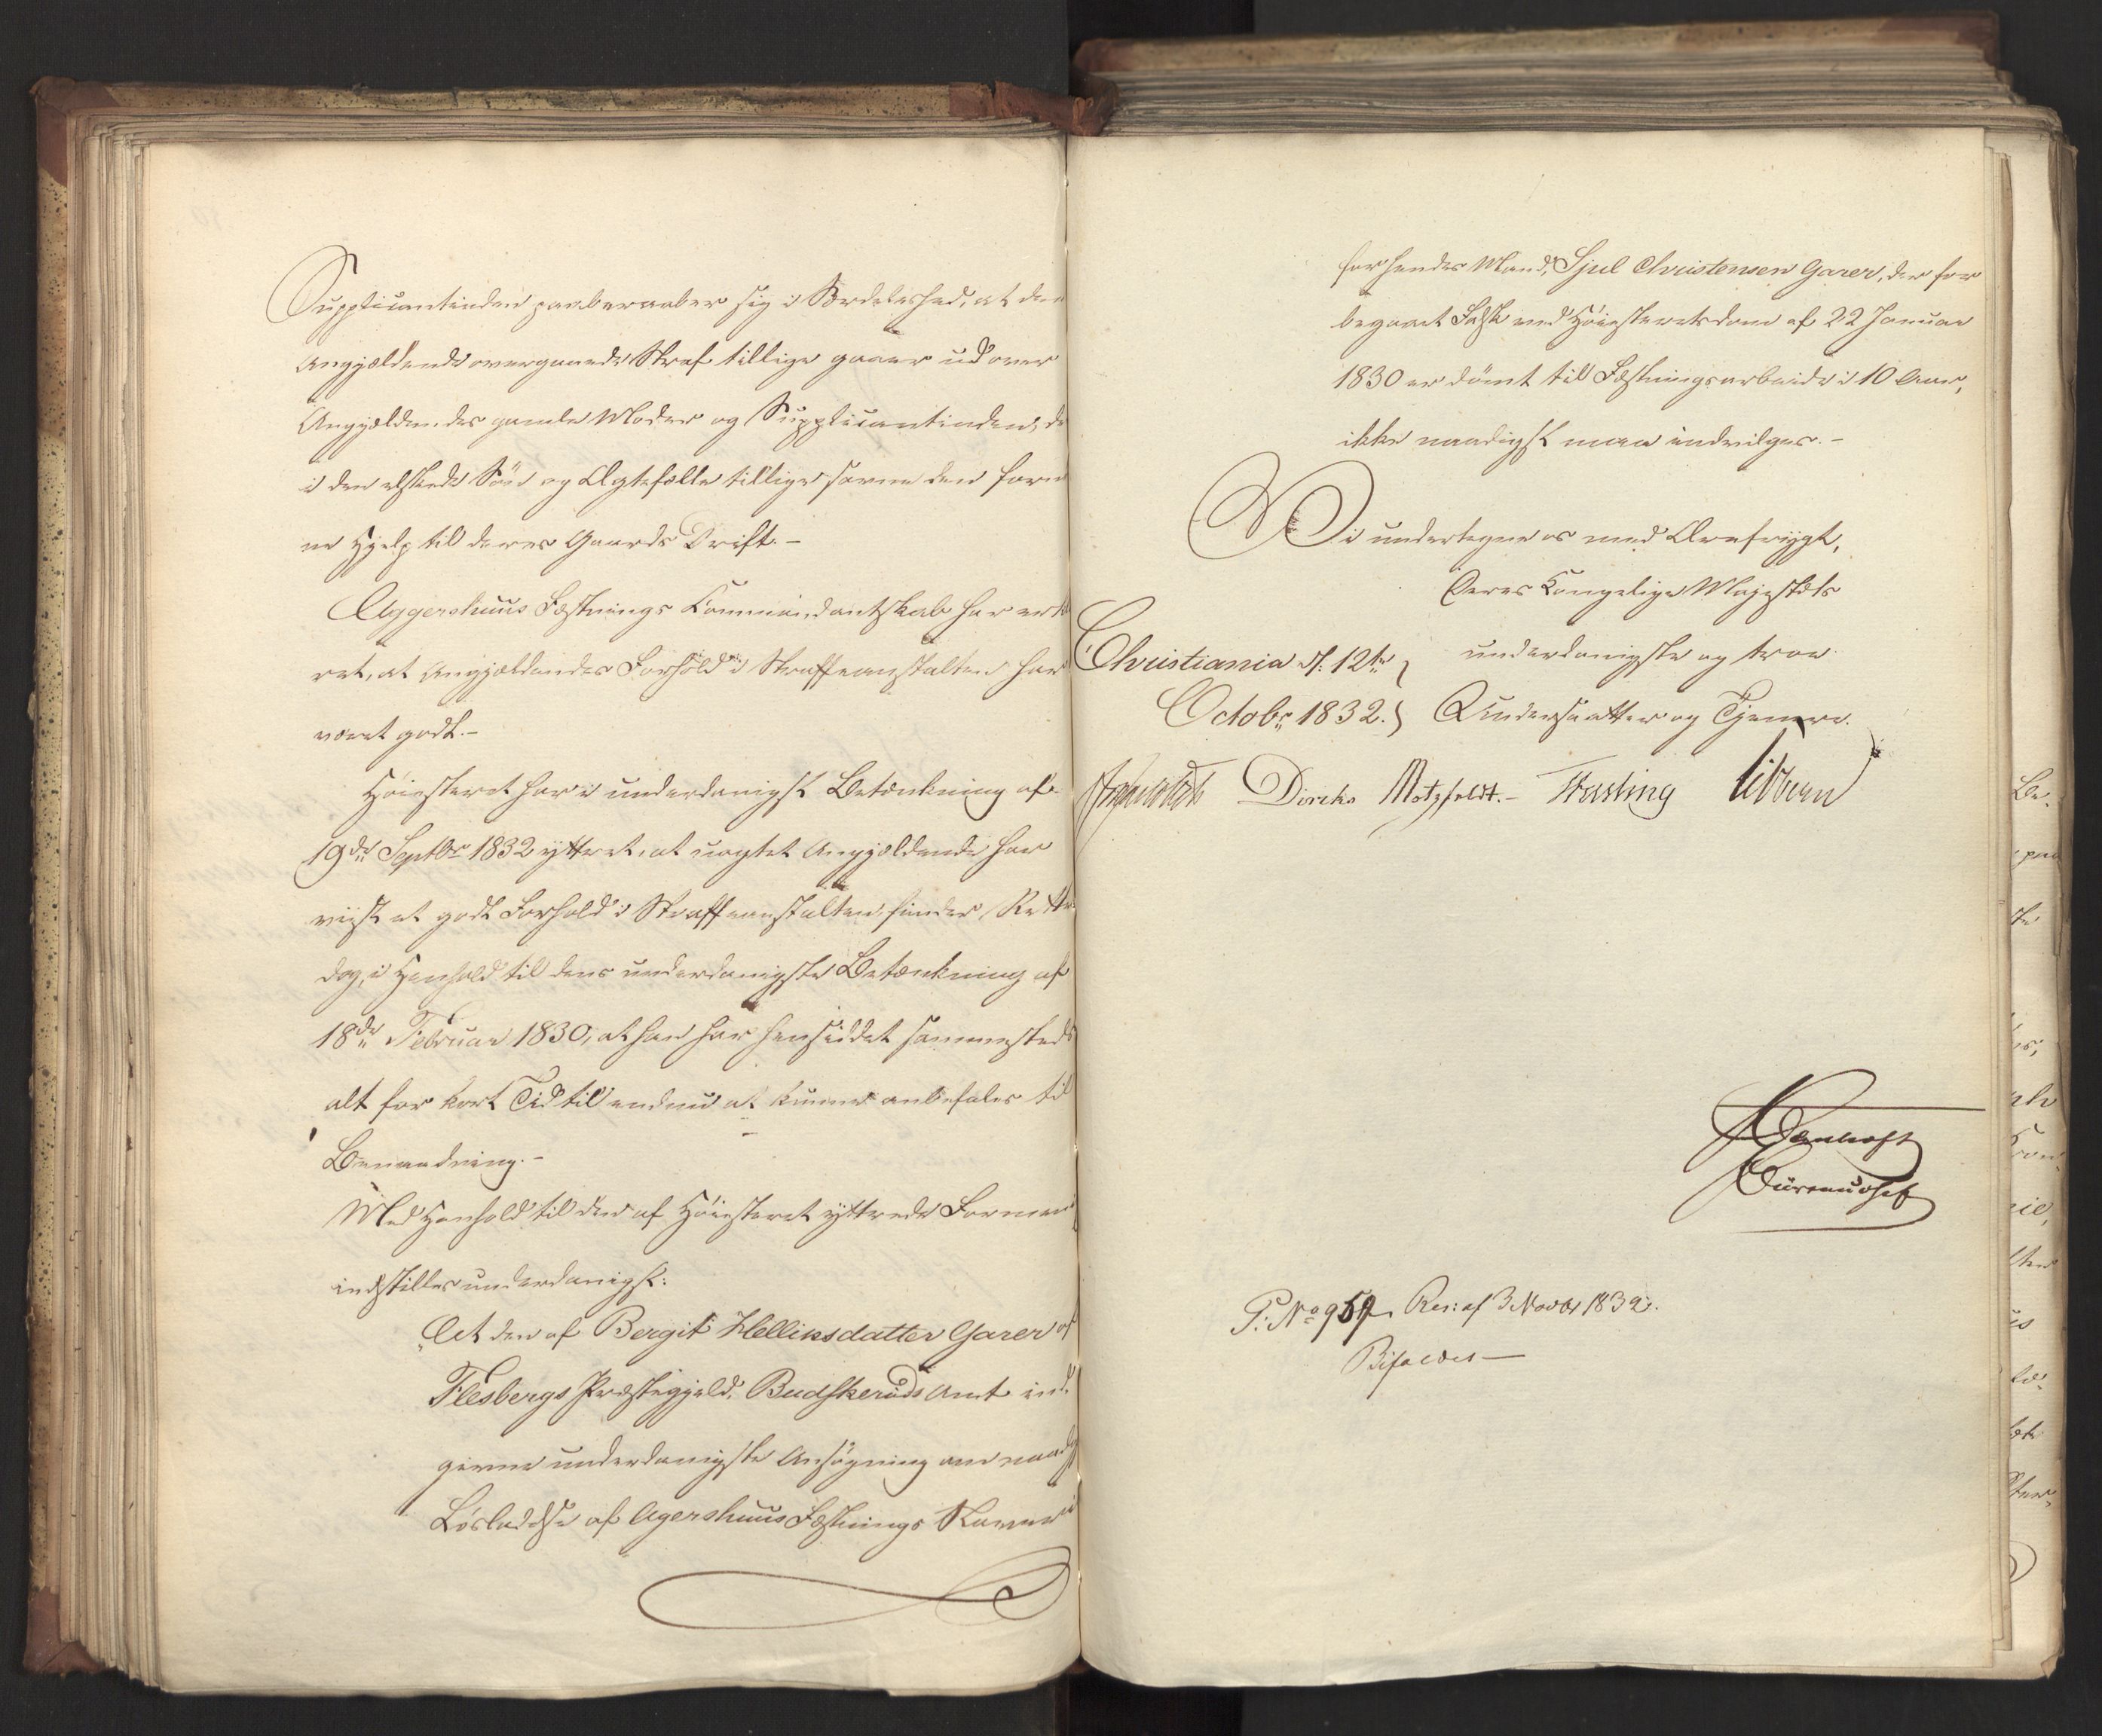 Supplicantinden paaberaaber sig i Særdeleshed, at den
Angjældende overgaaede Straf tillige gaaer ud over
Angjældendes gamle Moder og Supplicantinden, da
i den elskede Søn og Ægtefælle tillige savne den forn
ne Hjelp til deres Gaards Drift. -
Aggershuus Fæstnings Commandantskab har erklæ
ret, at Angjældendes Forhold i Straffeanstalten har
været godt. -
Høiesteret har i underdanigst Betænkning af
19de Septbr 1832 yttret, at uagtet Angjældende har
viist et godt Forhold i Straffeanstalten, finder Retten
dog, i Henhold til dens underdanigste Betænkning af
18de Februar 1830, at han har hensiddet sammesteds
alt for kort Tid til endnu at kunne anbefales til
Benaadning. -
Med Henhold til den af Høiesteret yttrede Formeni
indstilles underdanigst:
At den af Bergit Helliksdatter Garer af
Flesbergs Præstegjeld, Budskeruds Amt ind-
givne underdanigste Ansøgning om naadigst
Løsladelse af Agershuus Fæstnings Slaveri
for hendes Mand, Sjul Christensen Garer, der for
begaaet Falsk ved Høiesteretsdom af 22 Januar
1830 er dømt til Fæstningsarbeide i 10 Aar,
ikke naadigst maa indvilges. -
Vi undertegne os med Ærefrygt,
Deres Kongelige Majestæts
Christiania d: 12te underdanigste og troe
Octobr 1832. Undersaatter og Tjenere.
Diriks Motzfeldt. - Fasting Vibe
Bureauchef
P: No 959 Res: af 3 Novbr 1832.
Bifaldes -